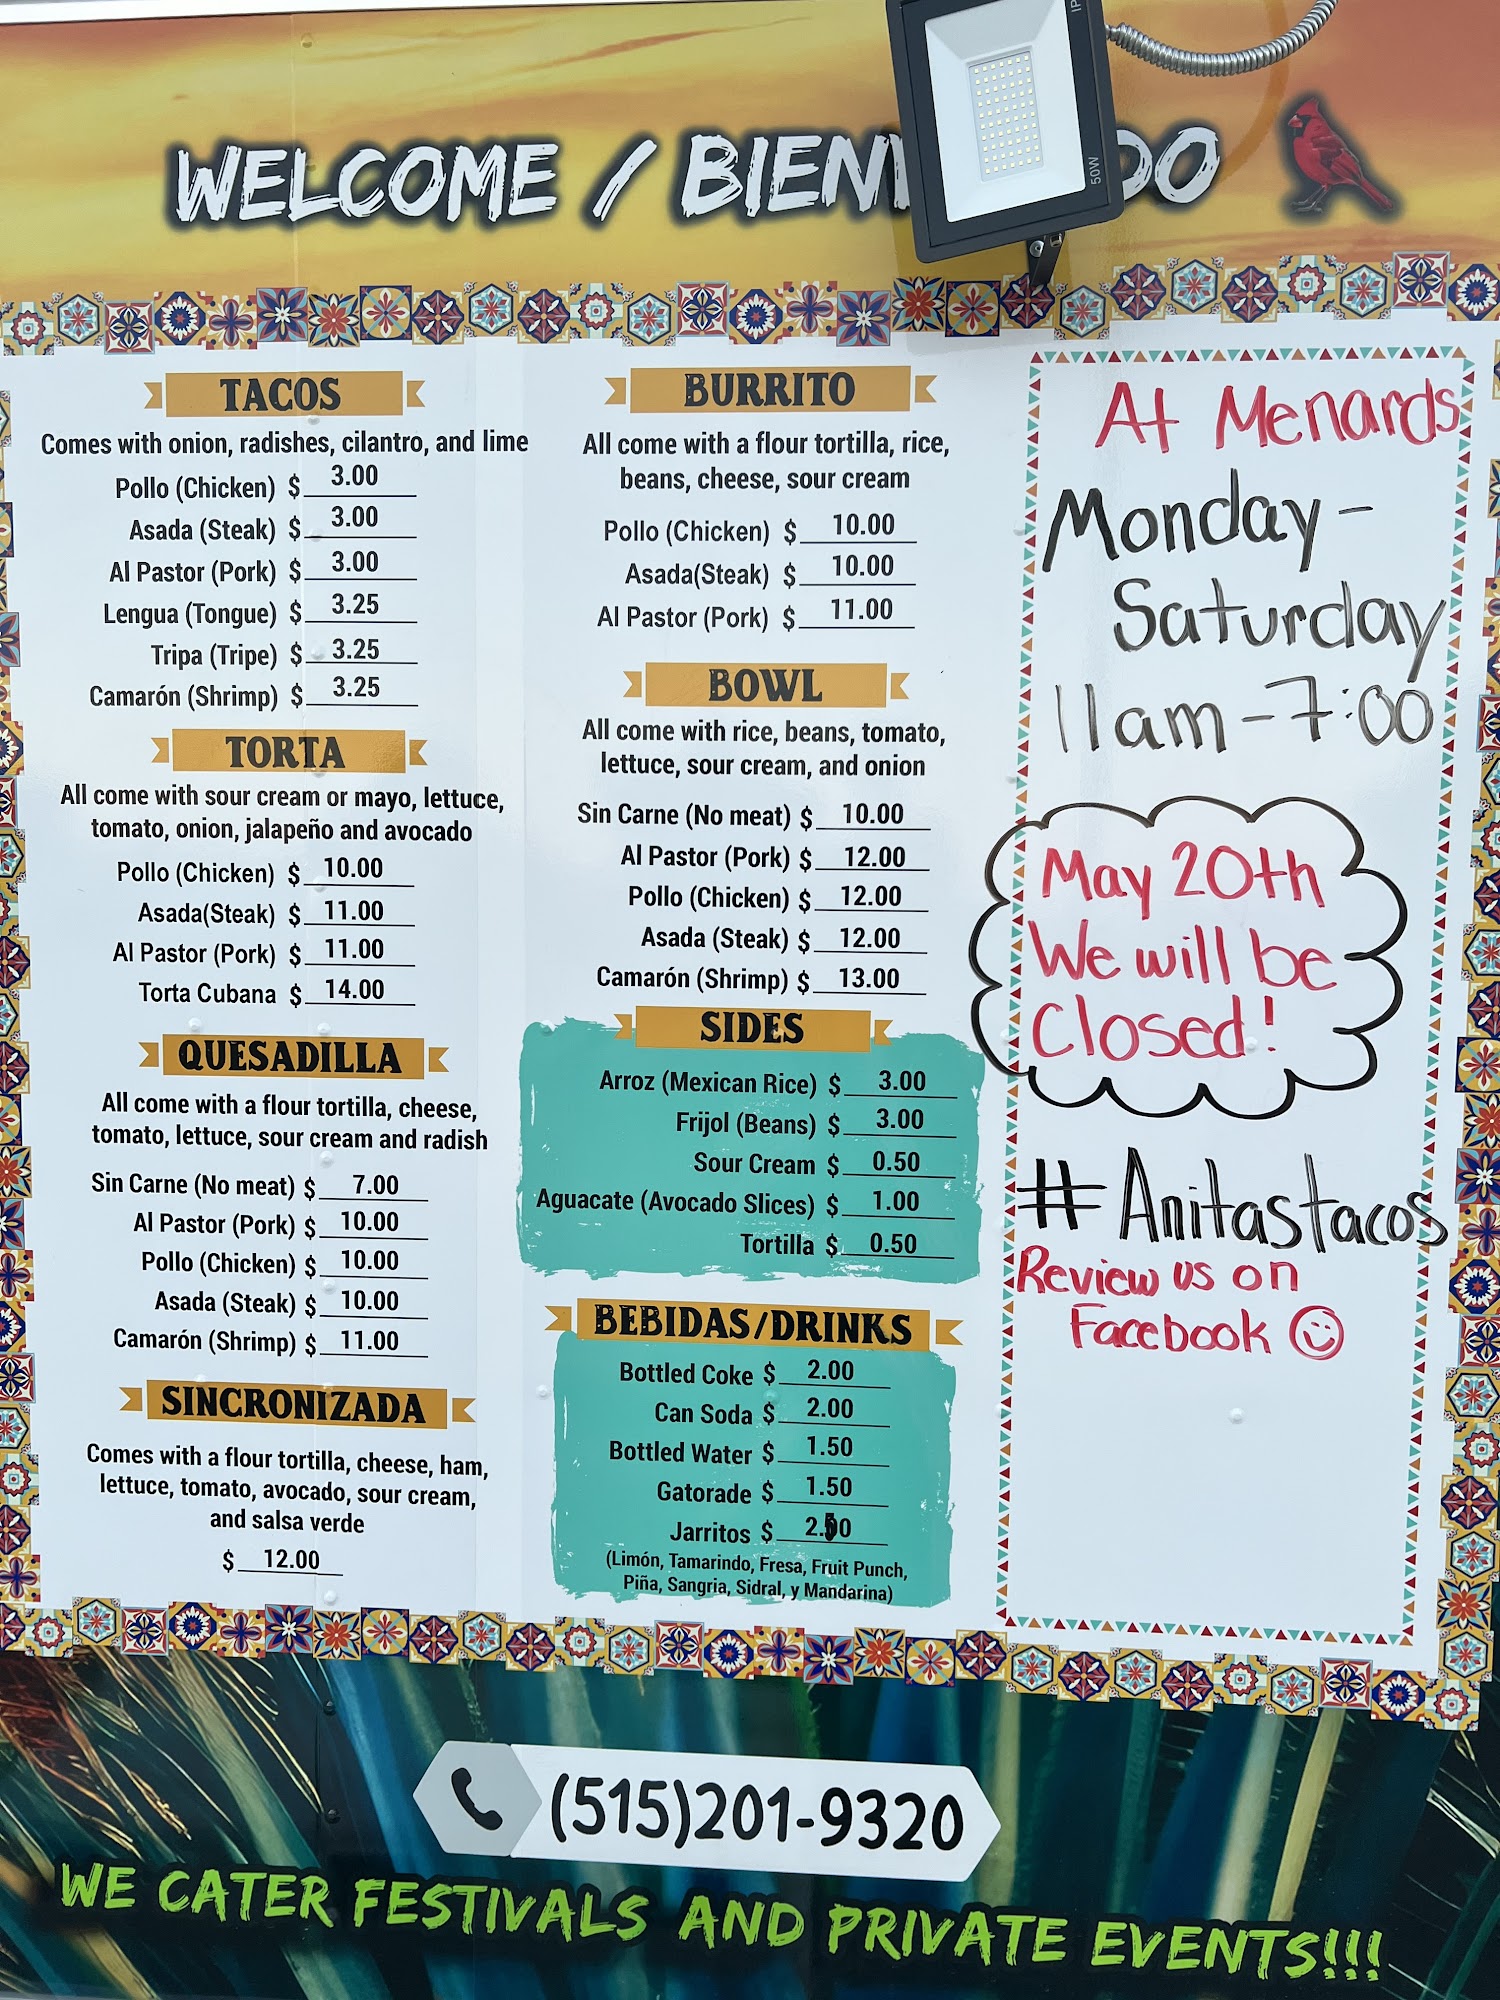 WELCOME / BIEN
50W
TACOS
Comes with onion, radishes, cilantro, and lime
Pollo (Chicken) $ 3.00
Asada (Steak) $ 3.00
Al Pastor (Pork) $ 3.00
Lengua (Tongue) $ 3.25
Tripa (Tripe) $ 3.25
Camarón (Shrimp) $ 3.25
TORTA
All come with sour cream or mayo, lettuce,
tomato, onion, jalapeño and avocado
Pollo (Chicken) $ 10.00
Asada(Steak) $ 11.00
Al Pastor (Pork) $ 11.00
Torta Cubana $ 14.00
QUESADILLA
All come with a flour tortilla, cheese,
tomato, lettuce, sour cream and radish
Sin Carne (No meat) $ 7.00
Al Pastor (Pork) $ 10.00
Pollo (Chicken) $ 10.00
Asada (Steak) $ 10.00
Camarón (Shrimp) $ 11.00
SINCRONIZADA
Comes with a flour tortilla, cheese, ham,
lettuce, tomato, avocado, sour cream,
and salsa verde
$ 12.00
BURRITO
All come with a flour tortilla, rice,
beans, cheese, sour cream
Pollo (Chicken) $ 10.00
Asada(Steak) $ 10.00
Al Pastor (Pork) $ 11.00
BOWL
All come with rice, beans, tomato,
lettuce, sour cream, and onion
Sin Carne (No meat) $ 10.00
Al Pastor (Pork) $ 12.00
Pollo (Chicken) $ 12.00
Asada (Steak) $ 12.00
Camarón (Shrimp) $ 13.00
SIDES
Arroz (Mexican Rice) $ 3.00
Frijol (Beans) $ 3.00
Sour Cream $ 0.50
Aguacate (Avocado Slices) $ 1.00
Tortilla $ 0.50
BEBIDAS/DRINKS
Bottled Coke $ 2.00
Can Soda $ 2.00
Bottled Water $ 1.50
Gatorade $ 1.50
Jarritos $ 2.50
(Limón, Tamarindo, Fresa, Fruit Punch,
Piña, Sangria, Sidral, y Mandarina)
At Menards
Monday -
Saturday
11am - 7:00
May 20th
We will be
Closed!
#Anitastacos
Review us on
Facebook
(515)201-9320
WE CATER FESTIVALS AND PRIVATE EVENTS!!!